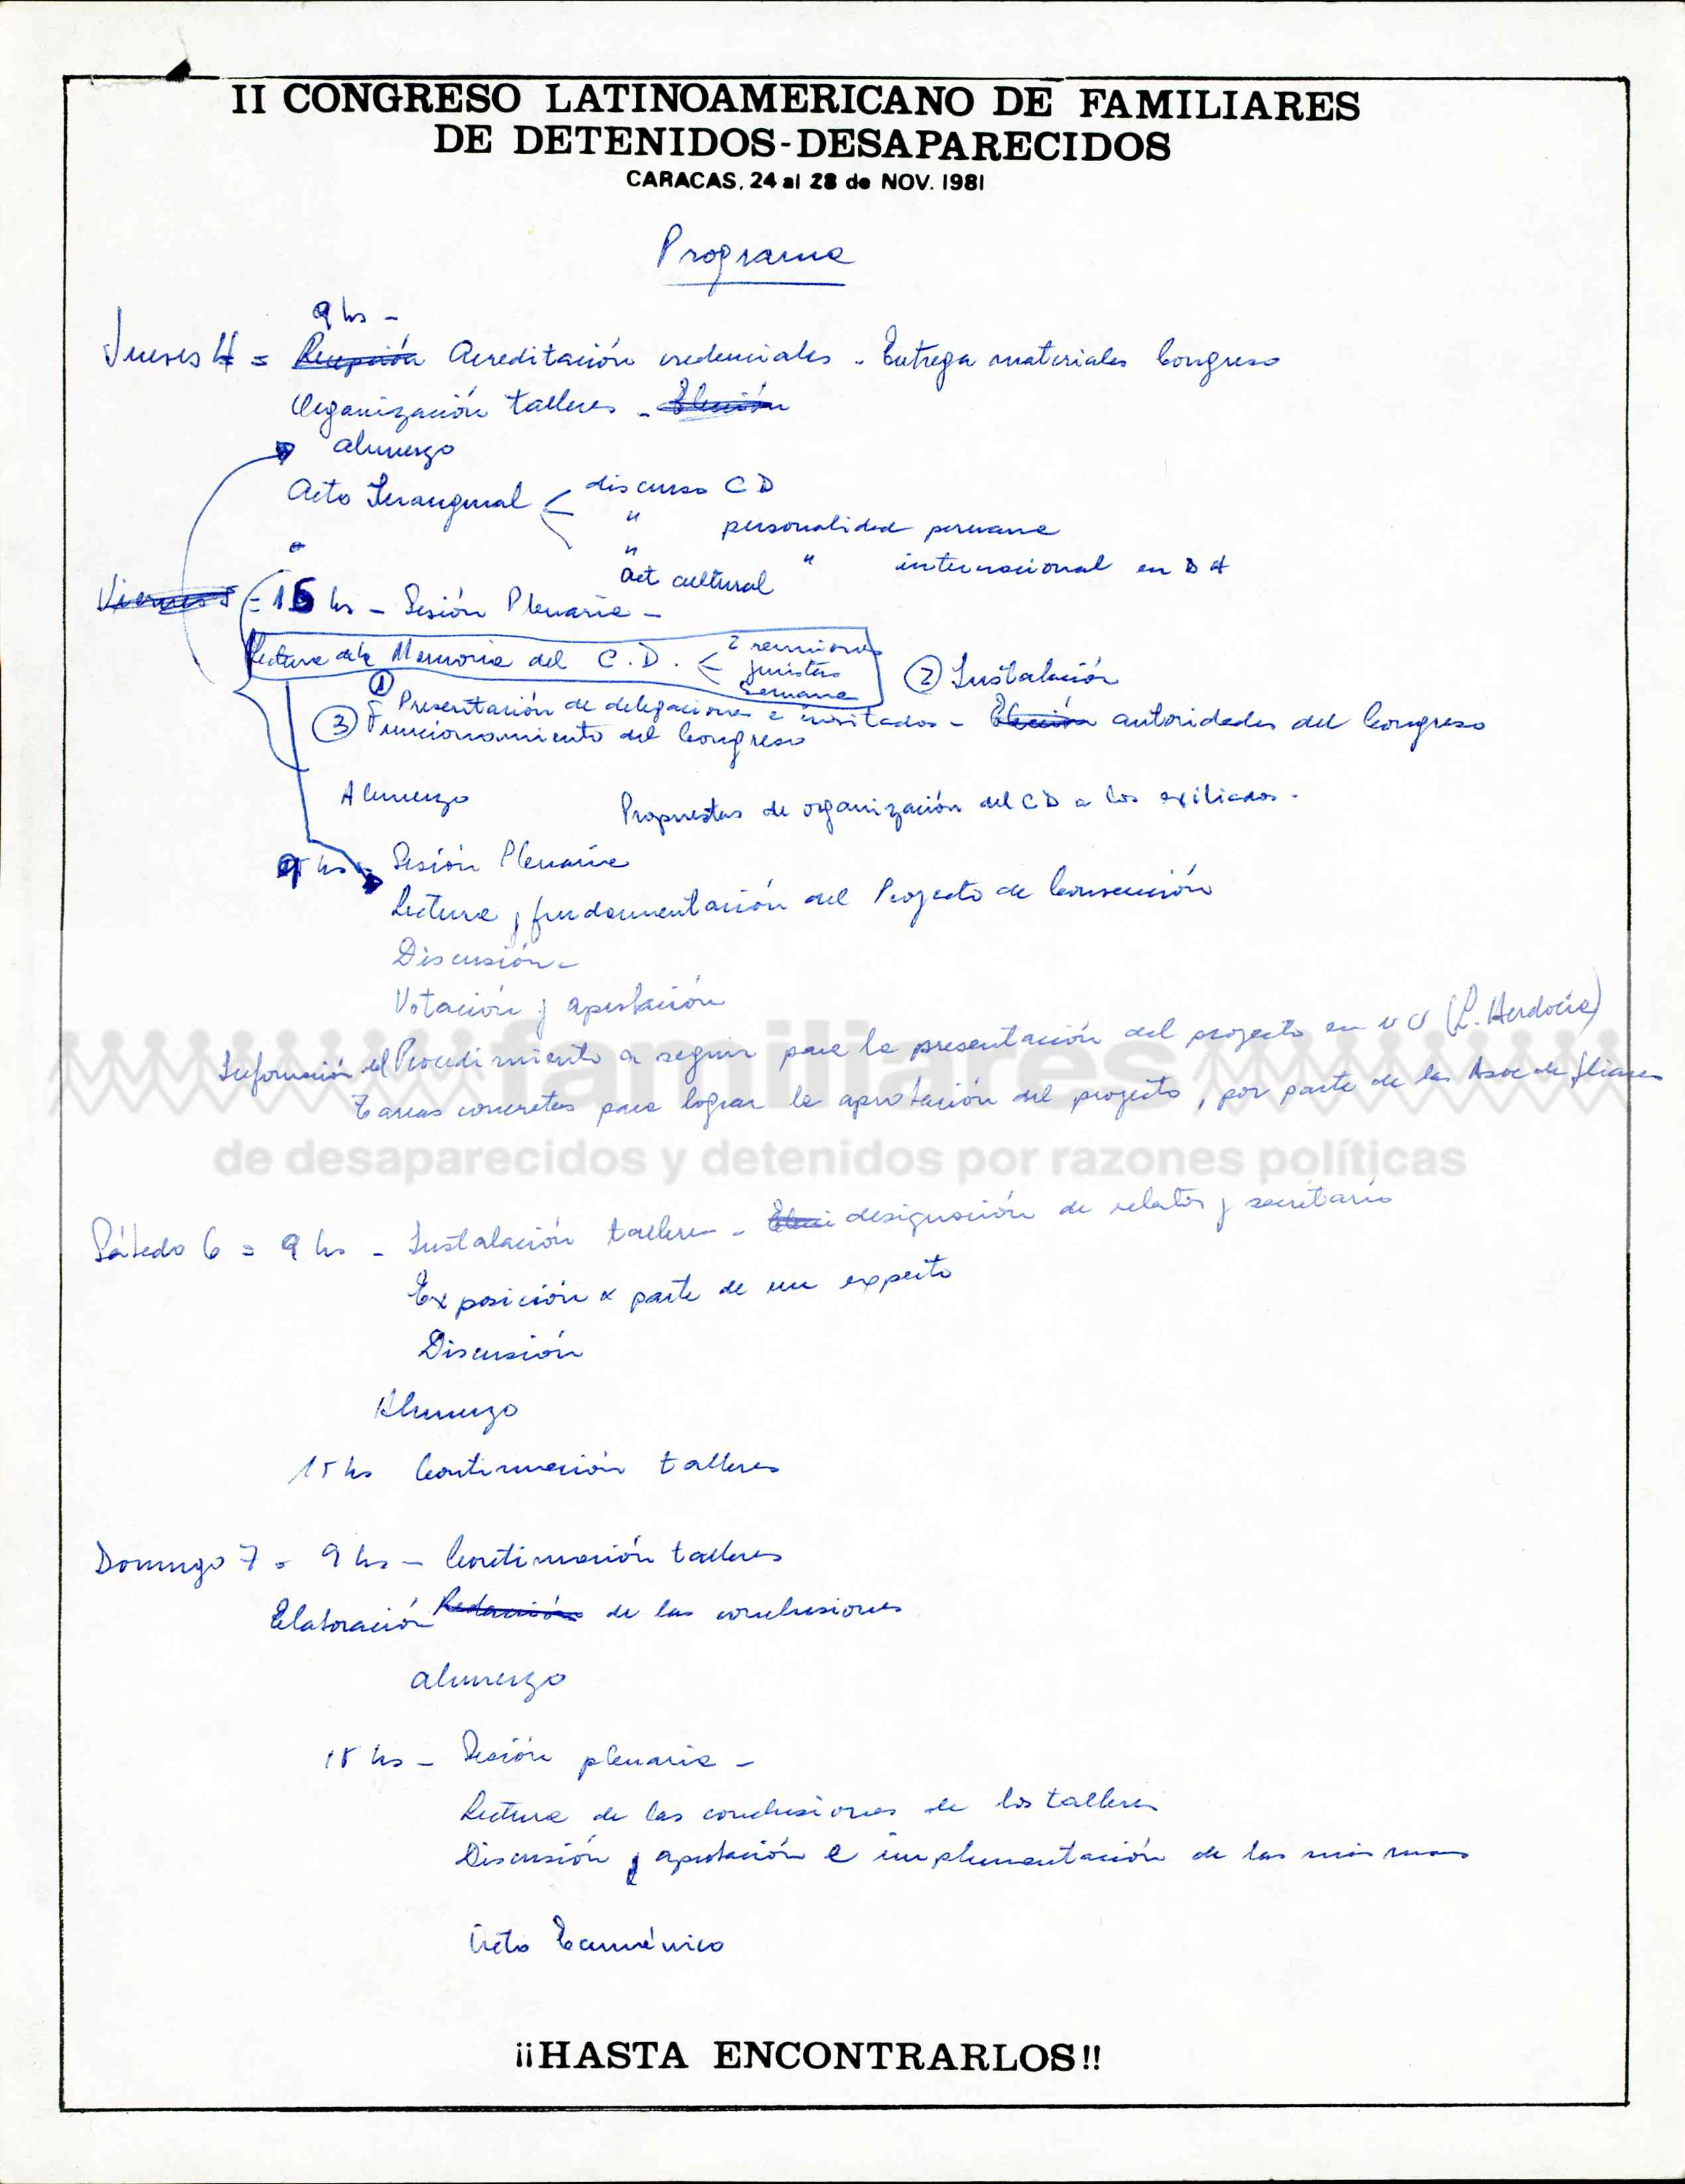 II CONGRESO LATINOAMERICANO DE FAMILIARES
DE DETENIDOS-DESAPARECIDOS
CARACAS, 24 al 28 de NOV. 1981
Programa
9 hs -
Jueves 4 = Recepción Acreditación credenciales - Entrega materiales Congreso
Organización talleres - Elección
almuerzo
Acto Inaugural < discurso CD
" personalidad peruana
" " internacional en DH
Act cultural
Viernes 5 = 15 hs - Sesión Plenaria -
Lectura de la Memoria del C.D. < 2 reuniones
juristas
semana
② Instalación
① Presentación de delegaciones e invitados - Elección autoridades del Congreso
③ Funcionamiento del Congreso
Almuerzo
Propuestas de organización del CD a los exiliados.
9 hs - Sesión Plenaria
Lectura y fundamentación del Proyecto de Convención
Discusión -
Votación y aprobación
familiares
Información del Procedimiento a seguir para la presentación del proyecto en NU (L. Herdocia)
Tareas concretas para lograr la aprobación del proyecto, por parte de las Asoc de fliares
de desaparecidos y detenidos por razones políticas
Sábado 6 = 9 hs - Instalación talleres - Elecci designación de relator y secretario
Exposición x parte de un experto
Discusión
Almuerzo
15 hs Continuación talleres
Domingo 7 = 9 hs - Continuación talleres
Elaboración Redacción de las conclusiones
almuerzo
15 hs - Sesión plenaria -
Lectura de las conclusiones de los talleres
Discusión y aprobación e implementación de las mismas
Acto Ecuménico
¡¡HASTA ENCONTRARLOS!!